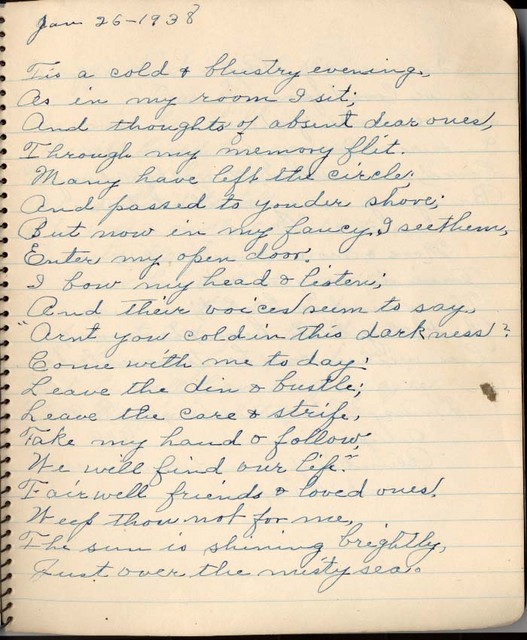 Jan 26-1938
Tis a cold & blustry evening,
As in my room I sit;
And thoughts of absent dear ones,
Through my memory flit.
Many have left the circle,
And passed to yonder shore;
But now in my fancy, I see them,
Enter my open door.
I bow my head & listen;
And their voices seem to say,
"Arnt you cold in this darkness?
Come with me to day;
Leave the din & bustle;
Leave the care & strife,
Take my hand & follow,
We will find our life."
Fairwell friends & loved ones,
Weep thou not for me,
The sun is shining brightly,
Just over the misty sea.